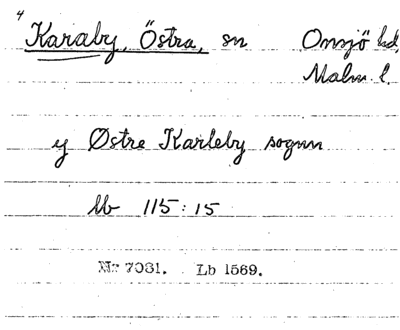 4
Karaby, Östra, sn Onsjö hd,
Malm. l.
y Østre Karleby sognn
bb 115:15
Nr 7031. Lb 1569.